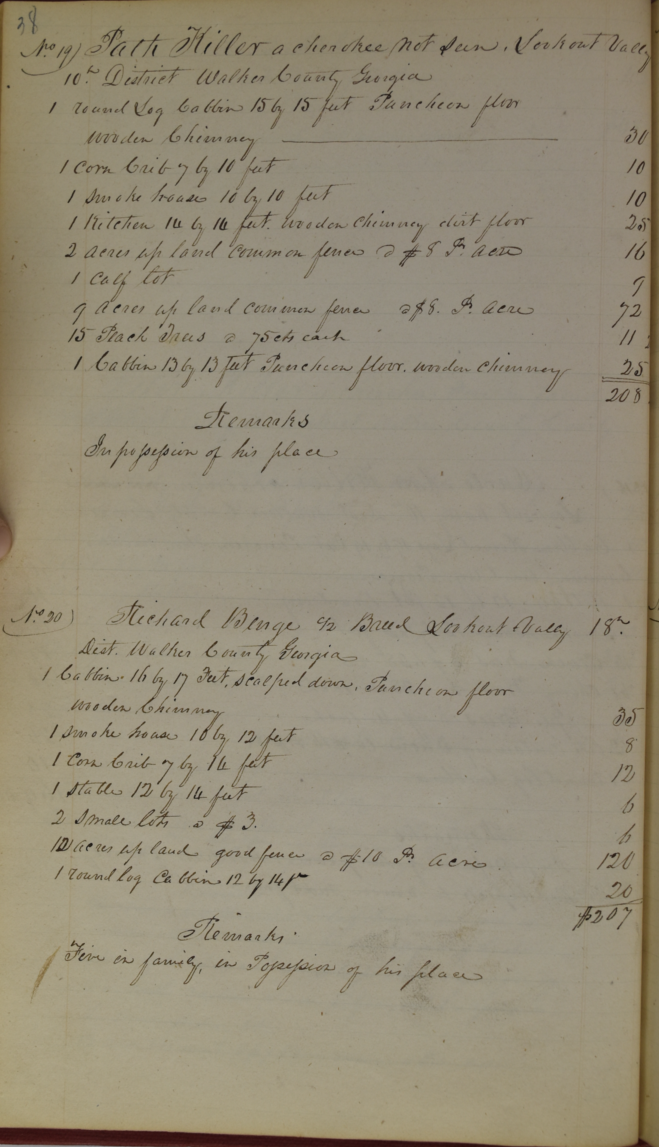 38
No 19) Path Killer a cherokee, not seen, Lookout Vally
10th District Walker County Georgia
1 round Log Cabbin 15 by 15 feet Puncheon floor
wooden Chimney 30
1 Corn Crib 7 by 10 feet 10
1 smoke house 10 by 10 feet 10
1 Kitchen 14 by 14 feet. wooden chimney dirt floor 25
2 acres up land common fence @ $8 Pr. acre 16
1 calf lot 9
9 acres up land common fence @ $8. Pr. acre 72
15 Peach Trees @ 75 cts each 11
1 Cabbin 13 by 13 feet Puncheon floor. wooden chimney 25
208
Remarks
In possession of his place
No 20) Richard Benge ½ Breed Lookout Vally 18th
Dist. Walker County Georgia
1 Cabbin 16 by 17 Feet, scalped down, Puncheon floor
wooden Chimney 35
1 smoke house 10 by 12 feet 8
1 Corn Crib 7 by 14 feet 12
1 stable 12 by 14 feet 6
2 small lots @ $3. 6
12 acres up land good fence @ $10 Pr. acre 120
1 round log Cabbin 12 by 14 f 20
$207
Remarks
Five in family, in Possession of his place